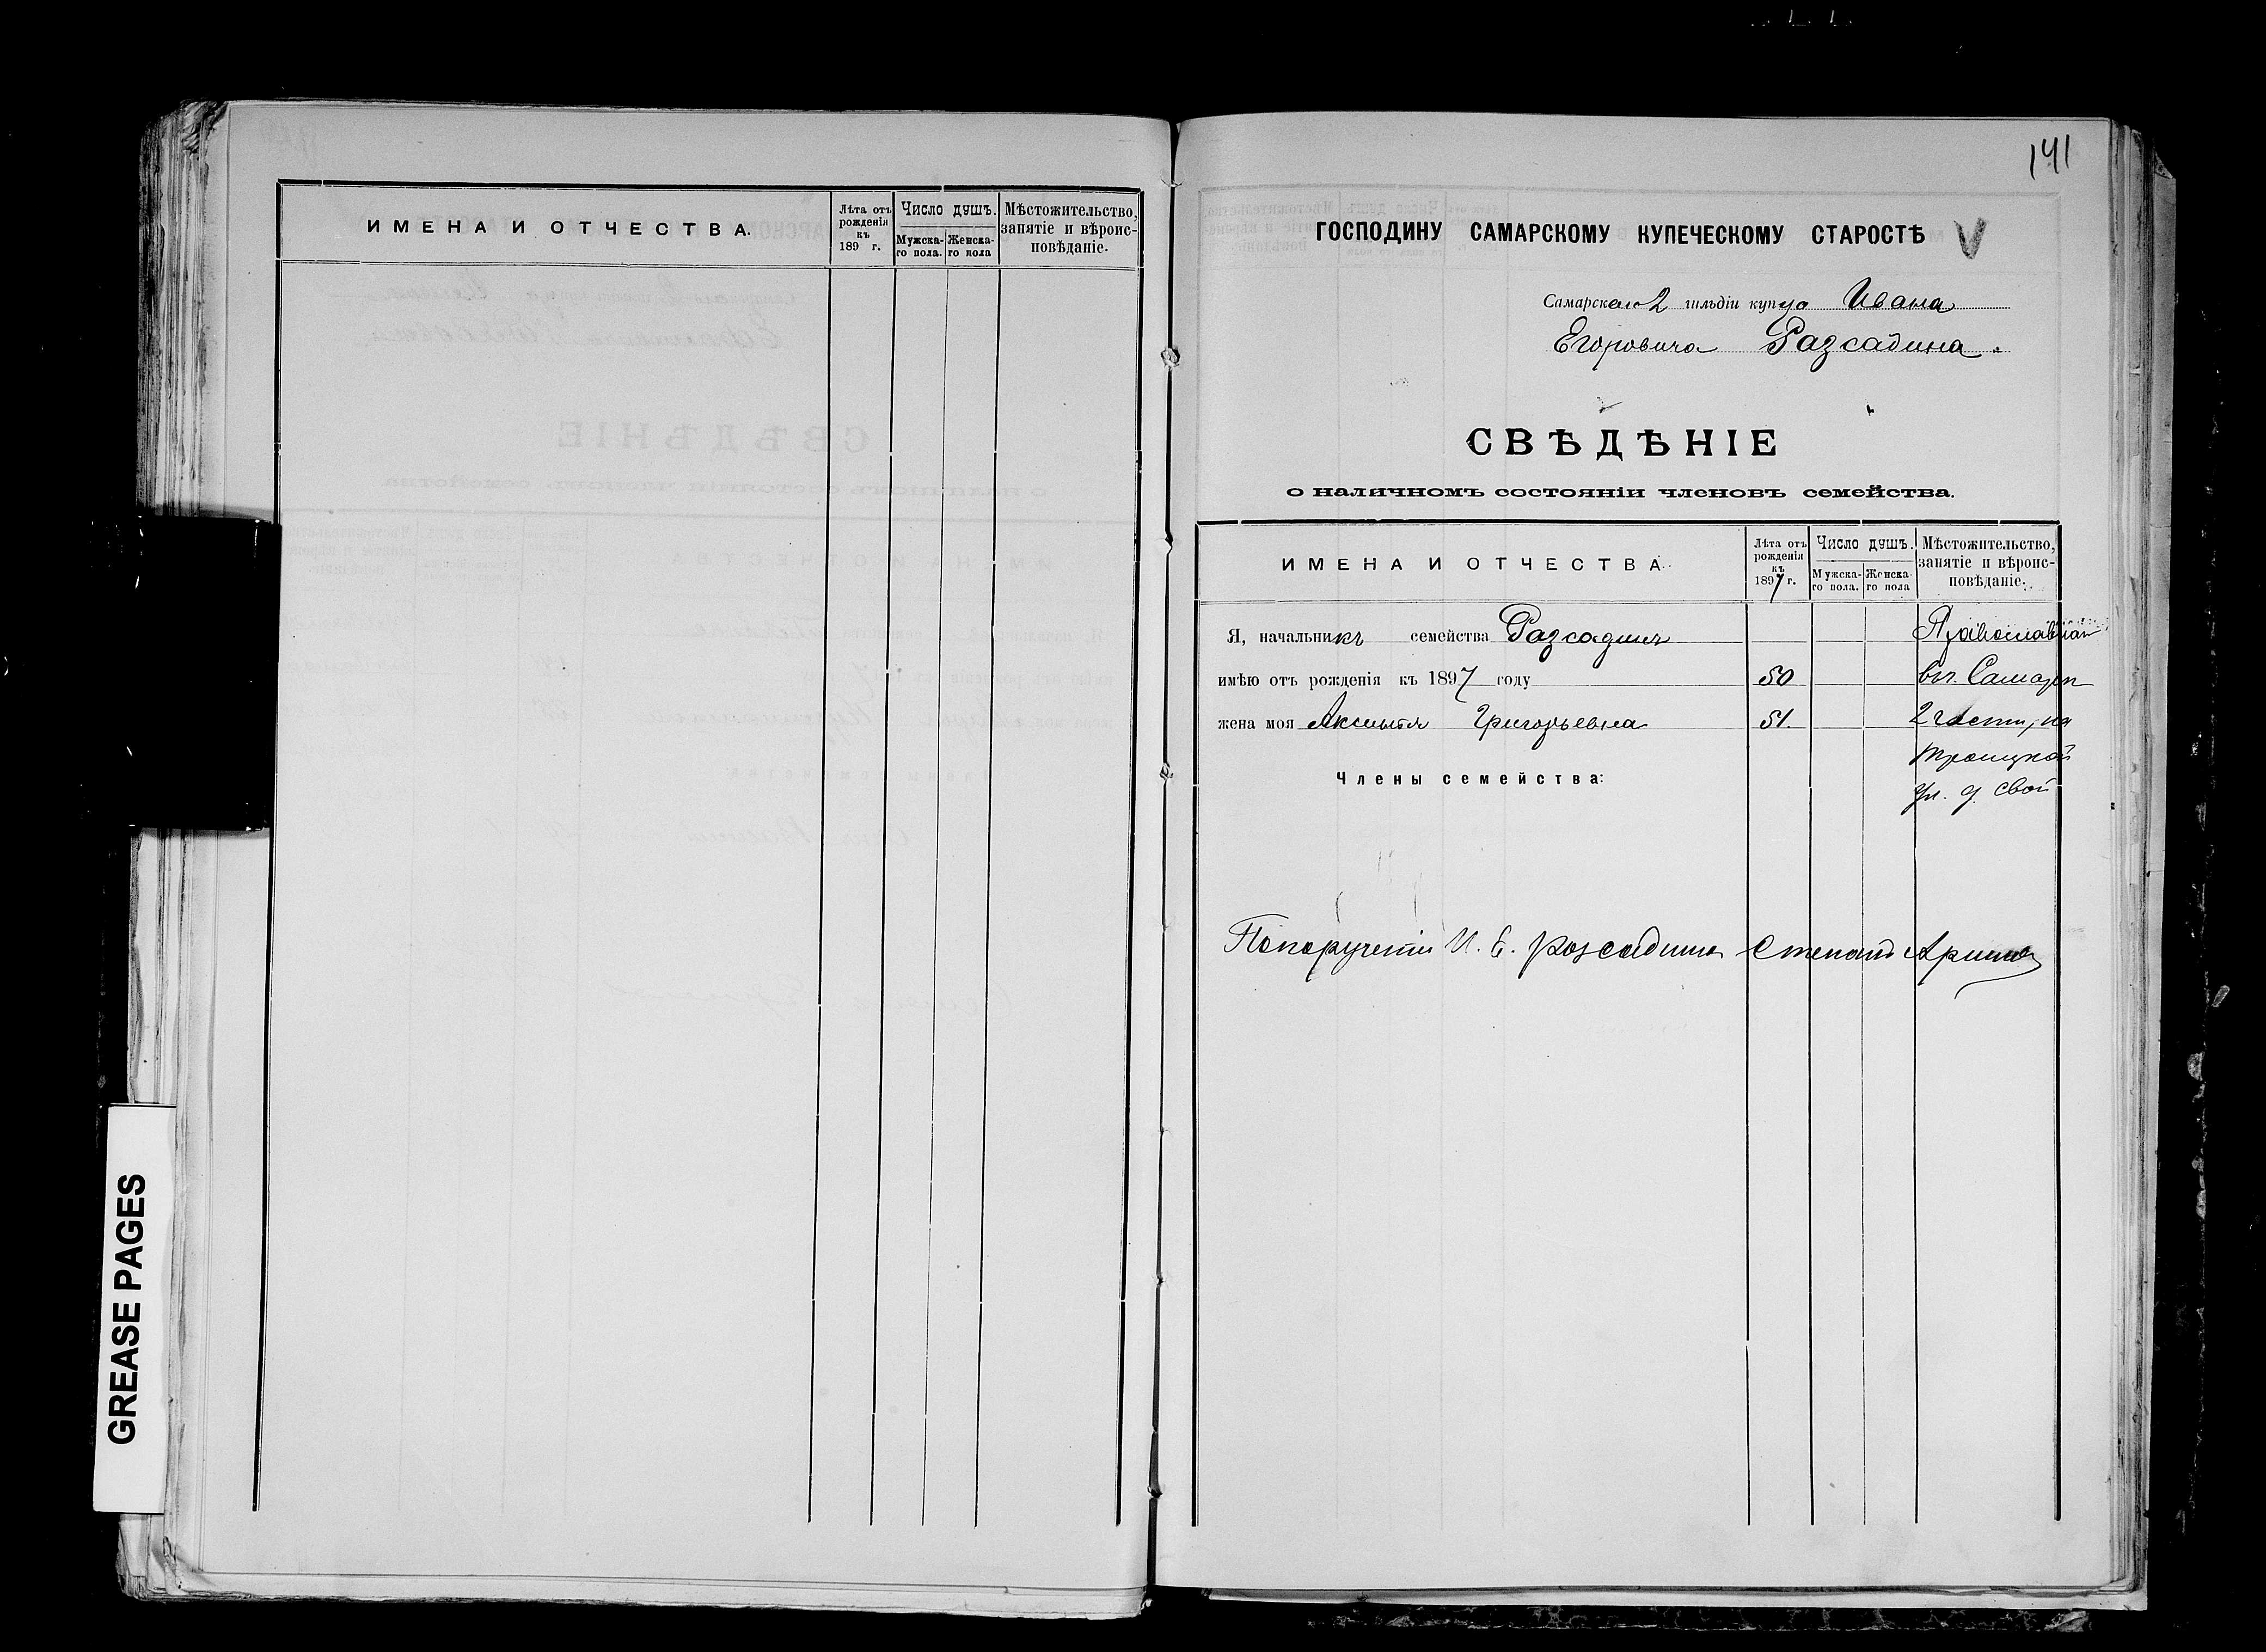 ИМЕНА И ОТЧЕСТВА.
Лѣта отъ рожденія къ 189 г.
Число душъ.
Мужска-го пола.
Женска-го пола
Мѣстожительство, занятіе и вѣроис-повѣданіе.
141
ГОСПОДИНУ САМАРСКОМУ КУПЕЧЕСКОМУ СТАРОСТѢ
Самарскаго 2 гильдіи купца Ивана
Егоровича Разсадина.
СВѢДѢНІЕ
о наличномъ состояніи членовъ семейства.
ИМЕНА И ОТЧЕСТВА.
Лѣта отъ рожденія къ 1897 г.
Число душъ.
Мужска-го пола.
Женска-го пола
Мѣстожительство, занятіе и вѣроис-повѣданіе.
Я, начальникъ семейства Разсадинъ
Православнаго
имѣю отъ рожденія къ 1897 году 50
въ г. Самарѣ
жена моя Аксинья Григорьевна 51.
2 части, на
Троицкой
ул. д. свой
Члены семейства:
По порученію И. Е. Розсадина Степанъ
GREASE PAGES